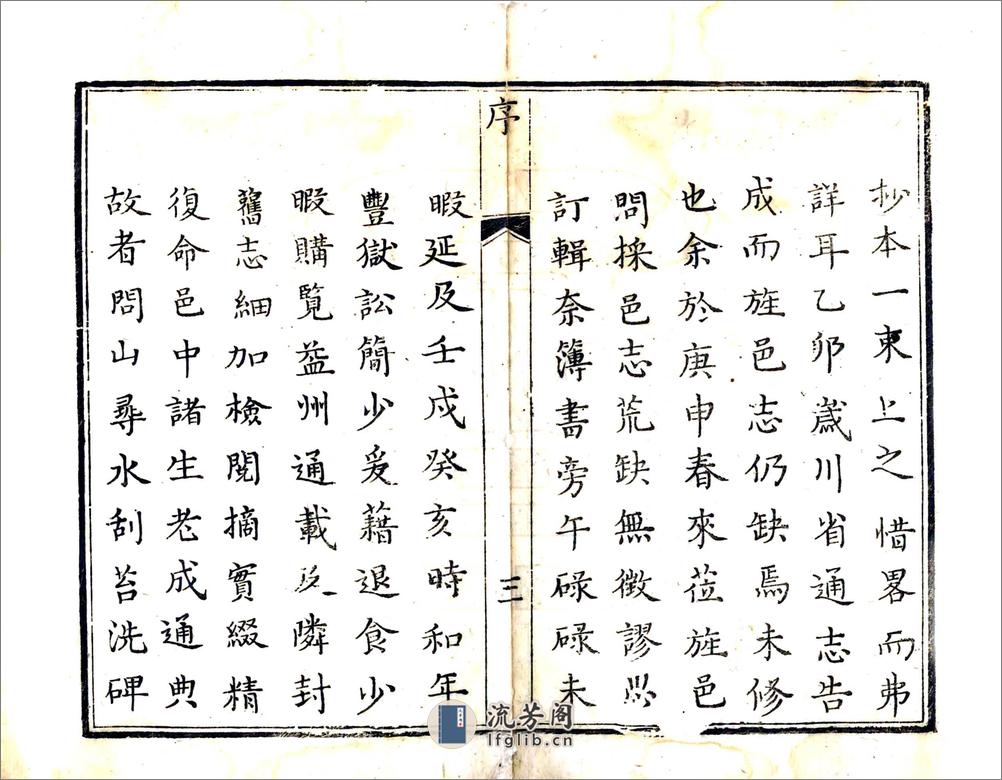 抄本一束上之惜畧而弗
詳耳乙夘歲川省通志告
成而旌邑志仍缺焉未修
也余於庚申春來莅旌邑
問採邑志荒缺無徵謬
訂輯奈簿書旁午碌碌未
序
三
暇延及壬戌癸亥時和年
豐獄訟簡少爰藉退食少
暇購覽益州通載及隣封
舊志細加檢閱摘實綴精
復命邑中諸生老成通典
故者問山尋水刮苔洗碑
流芳阁
lfglib.cn